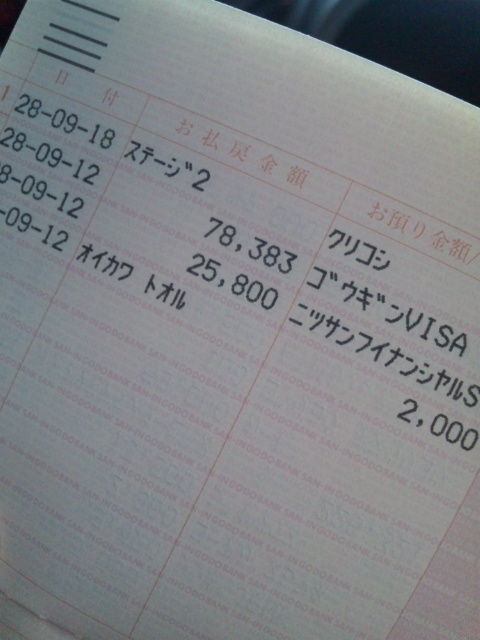 日 付 お払戻金額 お預り金額/
1 28-09-18 ステージ2 クリコシ
28-09-12 78,383 ゴウギンVISA
8-09-12 25,800 ニツサンフイナンシヤルS
-09-12 オイカワ トオル 2,000
SAN-IN GODO BANK